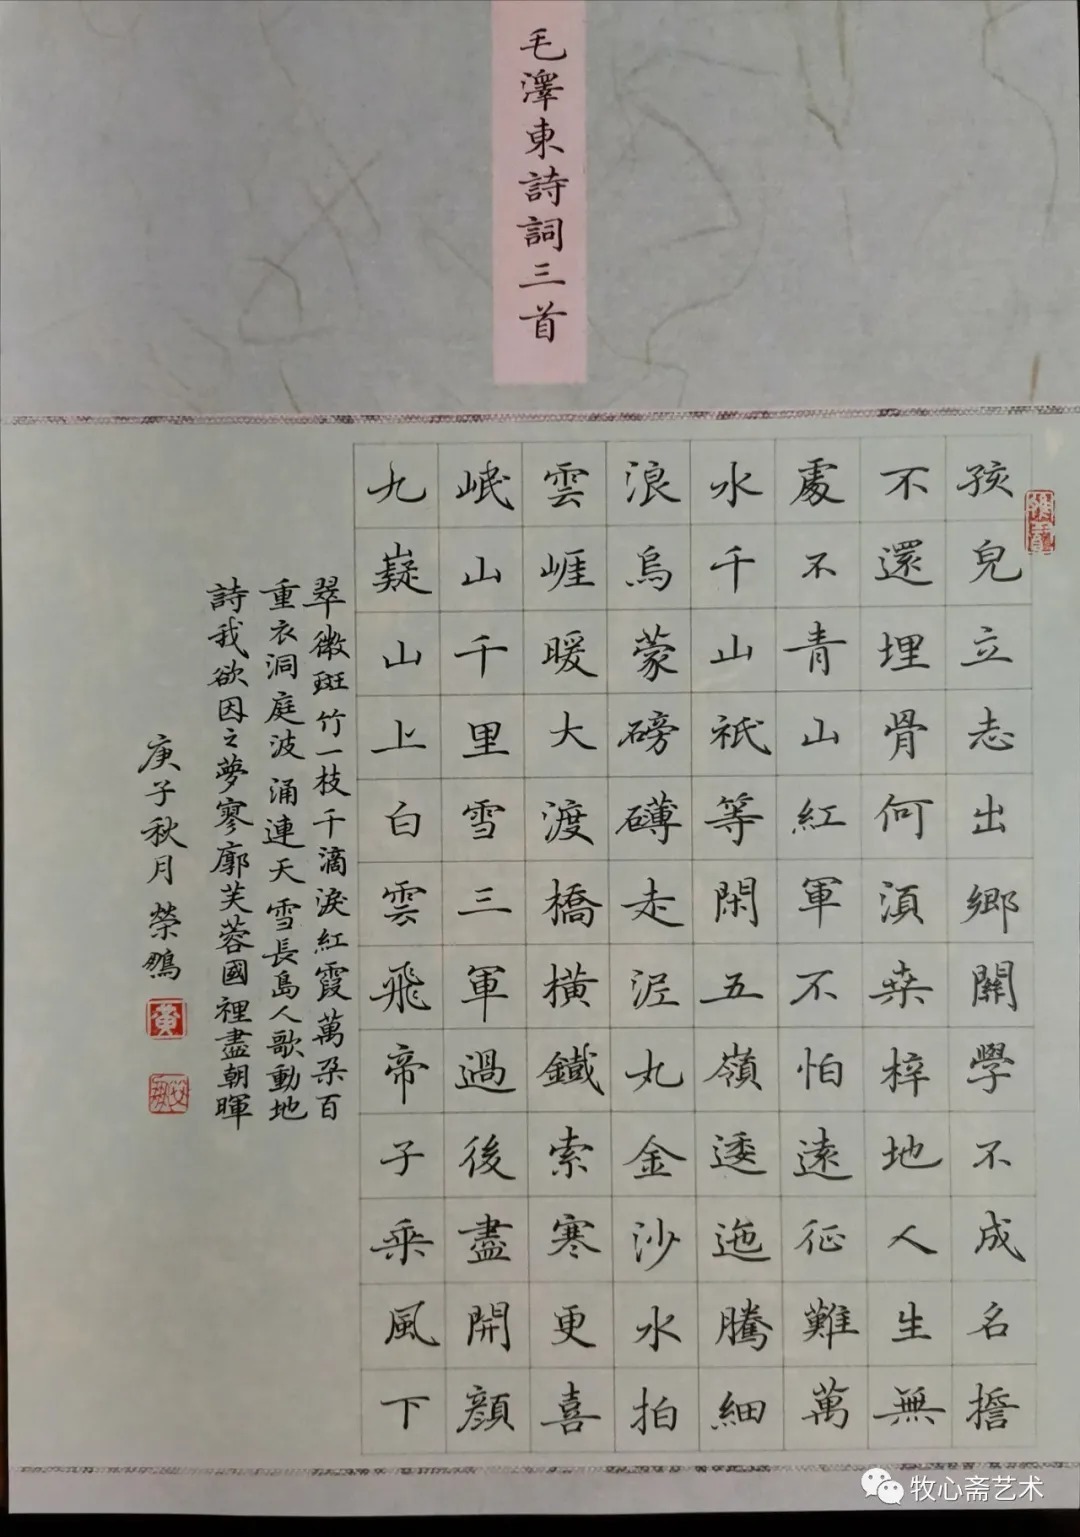 毛澤東詩詞三首
孩兒立志出鄉關學不成名擔
不還埋骨何須桒梓地人生無
處不青山紅軍不怕遠征難萬
水千山衹等閑五嶺逶迤騰細
浪烏蒙磅礴走泥丸金沙水拍
雲崕暖大渡橋橫鐵索寒更喜
岷山千里雪三軍過後盡開顔
九嶷山上白雲飛帝子乘風下
翠微斑竹一枝千滴淚紅霞萬朶百
重衣洞庭波涌連天雪長島人歌動地
詩我欲因之夢寥廓芙蓉國裡盡朝暉
庚子秋月 榮鵬
黄
牧心斋艺术